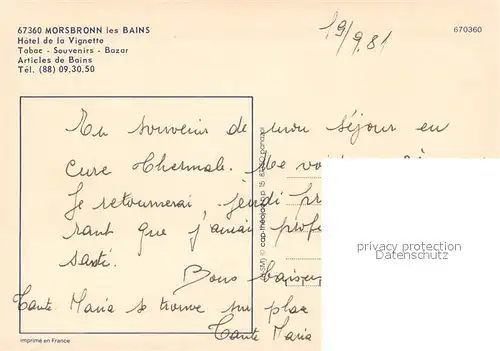 67360 MORSBRONN les BAINS
Hôtel de la Vignette
Tabac - Souvenirs - Bazar
Articles de Bains
Tél. (88) 09.30.50
670360
19/9.81
En souvenir de mon séjour en
cure thermale. Me
Je retournerai jeudi
rant que j'aurai
santé.
Bons baisers
Tante Maria se trouve sur place
Tante Maria
cap-théojac
imprimé en France
privacy protection
Ansichtskartenversand.com